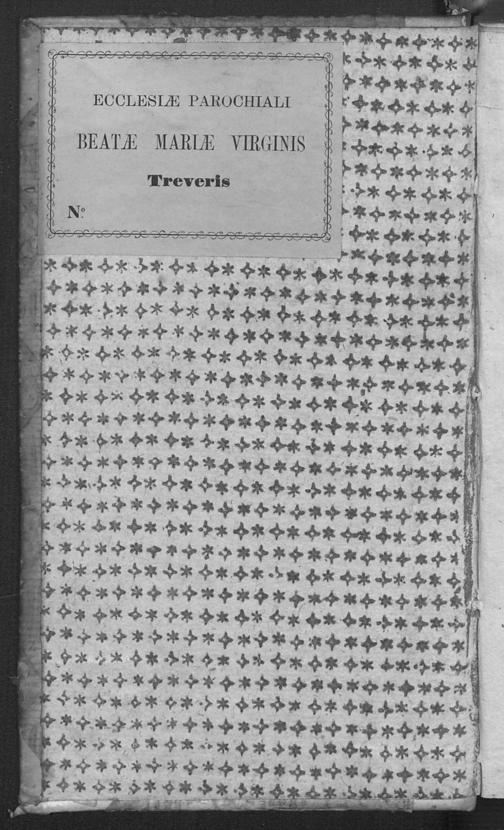 ECCLESIÆ PAROCHIALI
BEATÆ MARIÆ VIRGINIS
Treveris
Nº